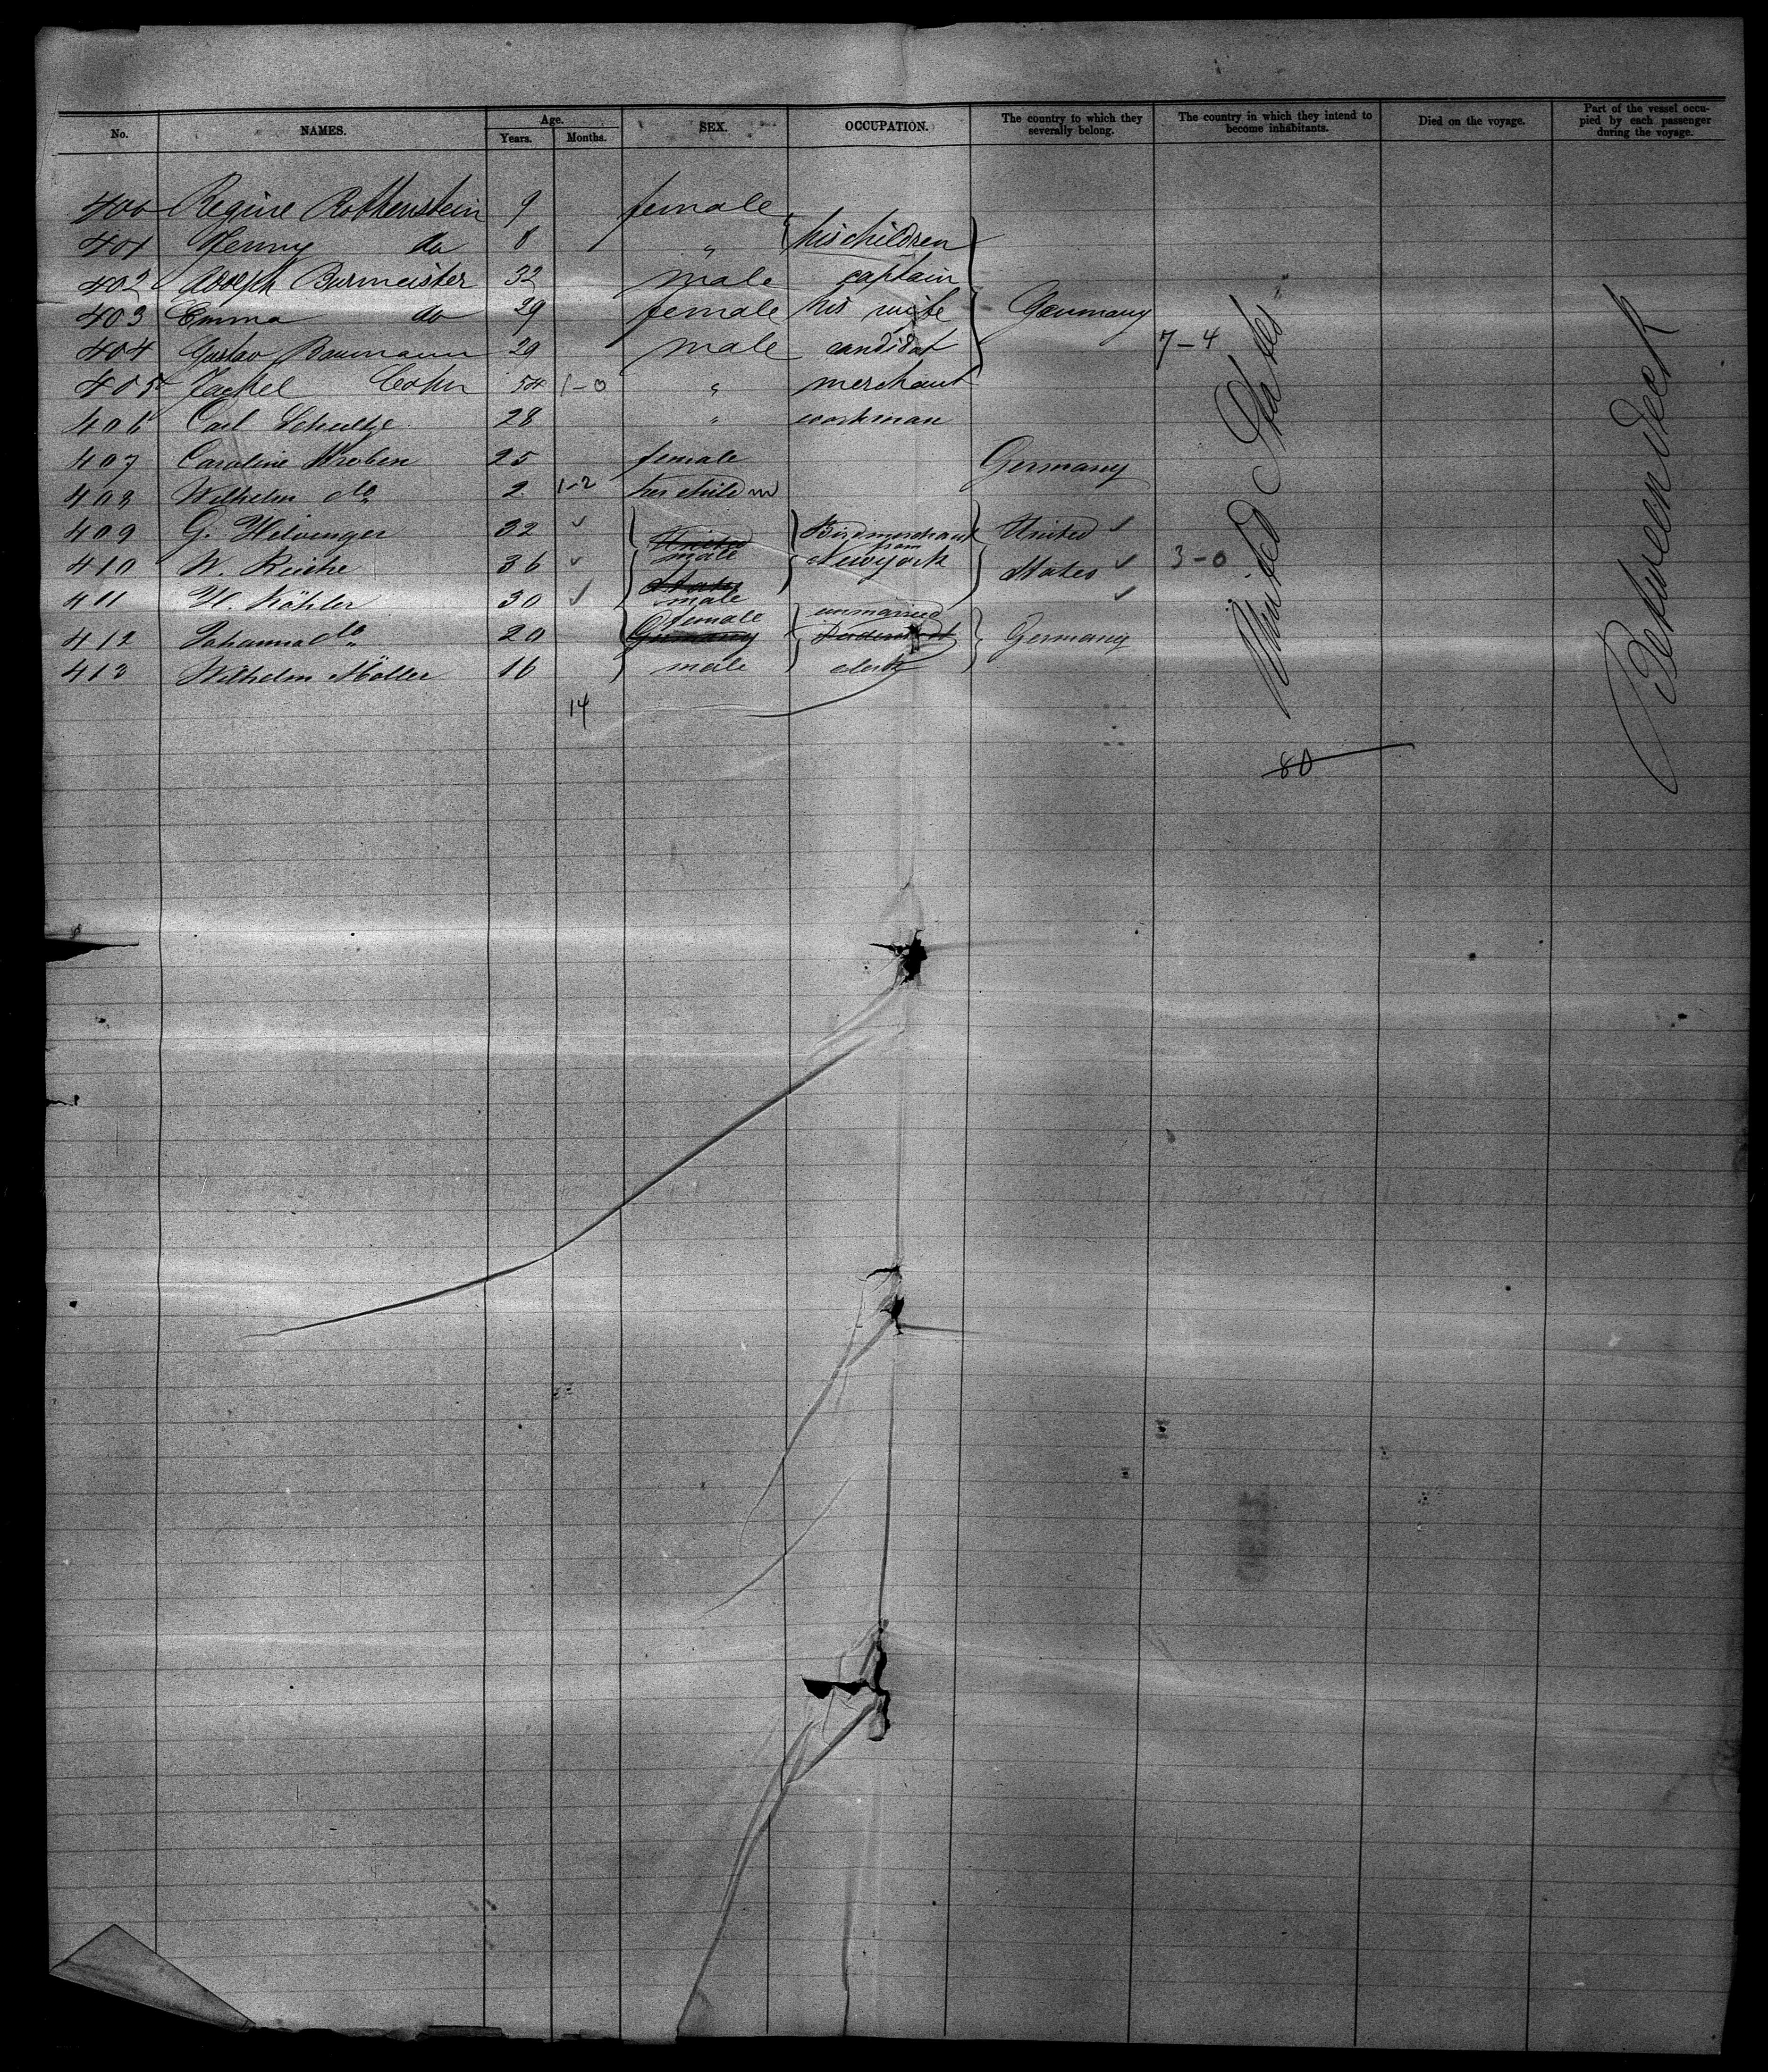 No. NAMES. Age. Years. Months. SEX. OCCUPATION. The country to which they severally belong. The country in which they intend to become inhabitants. Died on the voyage. Part of the vessel occupied by each passenger during the voyage.
400 Regine Rothenstein 9 female
401 Jenny do 8 " his children
402 Adolph Burmeister 32 male captain
403 Emma do 29 female his wife Germany
404 Gustav Baumann 29 male candidat 7-4
405 Jackel Cohn 54 1-0 " merchant
406 Carl Schultze 28 " workman
407 Caroline Wroben 25 female Germany
408 Wilhelm do 2 1-2 her child m
409 G. Helvinger 32 United Birdmerchant United
410 W. Reiche 36 male from Newyork States 3-0
411 H. Köhler 30 States male
412 Johanna do 20 female Germany unmarried Germany
413 Wilhelm Möller 16 male clerk
14
80
United States
Between deck